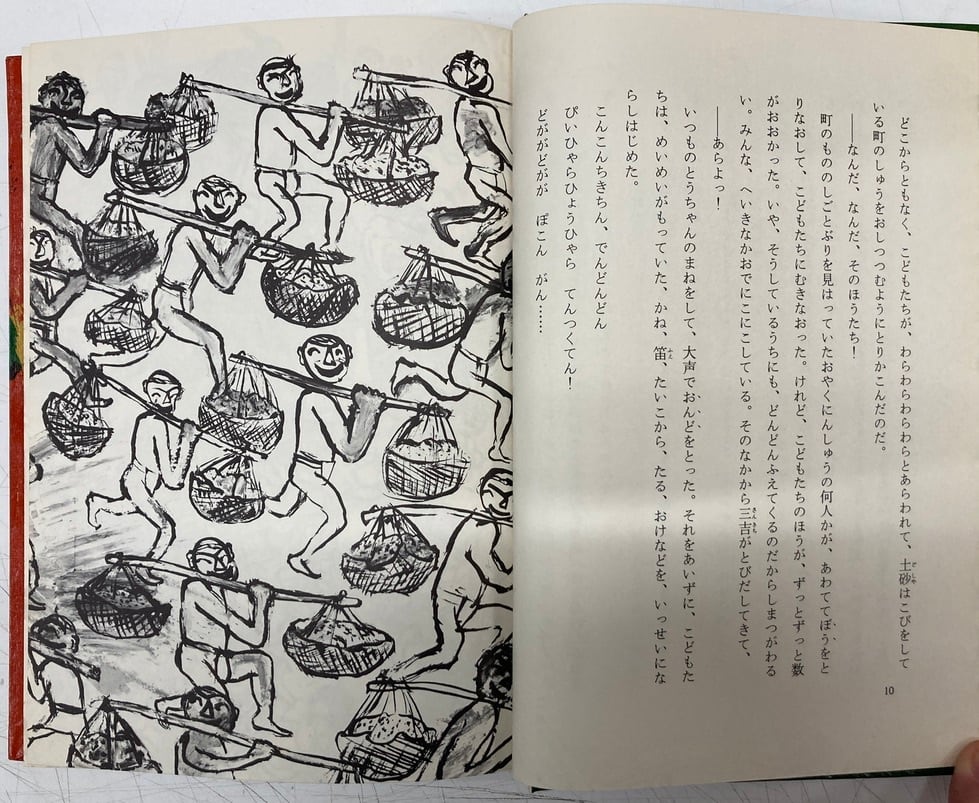 どこからともなく、こどもたちが、わらわらわらわらとあらわれて、土砂はこびをして
いる町のしゅうをおしつつむようにとりかこんだのだ。
――なんだ、なんだ、そのほうたち！
町のもののしごとぶりを見はっていたおやくにんしゅうの何人かが、あわててぼうをと
りなおして、こどもたちにむきなおった。けれど、こどもたちのほうが、ずっとずっと数
がおおかった。いや、そうしているうちにも、どんどんふえてくるのだからしまつがわる
い。みんな、へいきなかおでにこにこしている。そのなかから三吉がとびだしてきて、
――あらよっ！
いつものとうちゃんのまねをして、大声でおんどをとった。それをあいずに、こどもた
ちは、めいめいがもっていた、かね、笛、たいこから、たる、おけなどを、いっせいにな
らしはじめた。
こんこんちきちん、でんどんどん
ぴいひゃらひょうひゃら　てんつくてん！
どががどがが　ぼこん　がん……
10